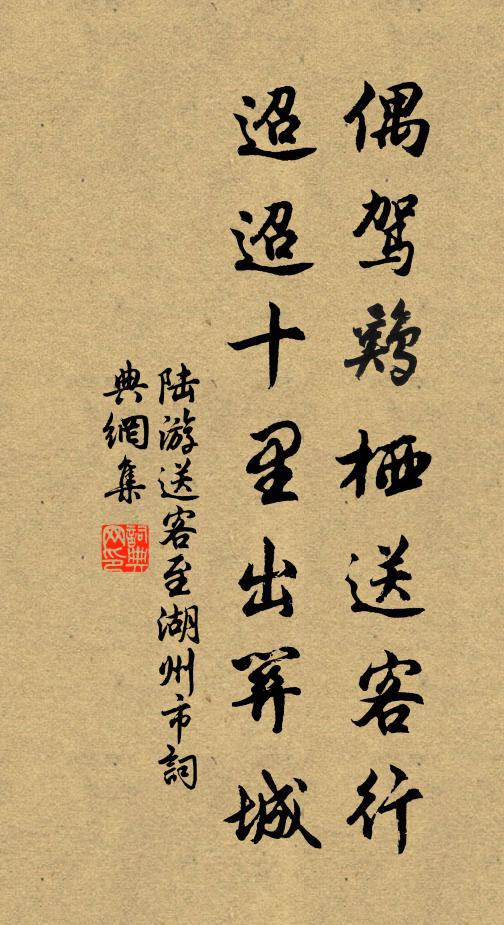 偶驾鷄栖送客行
迢迢十里出關城
陆游送客至湖州市詞
典網集
詞典网印